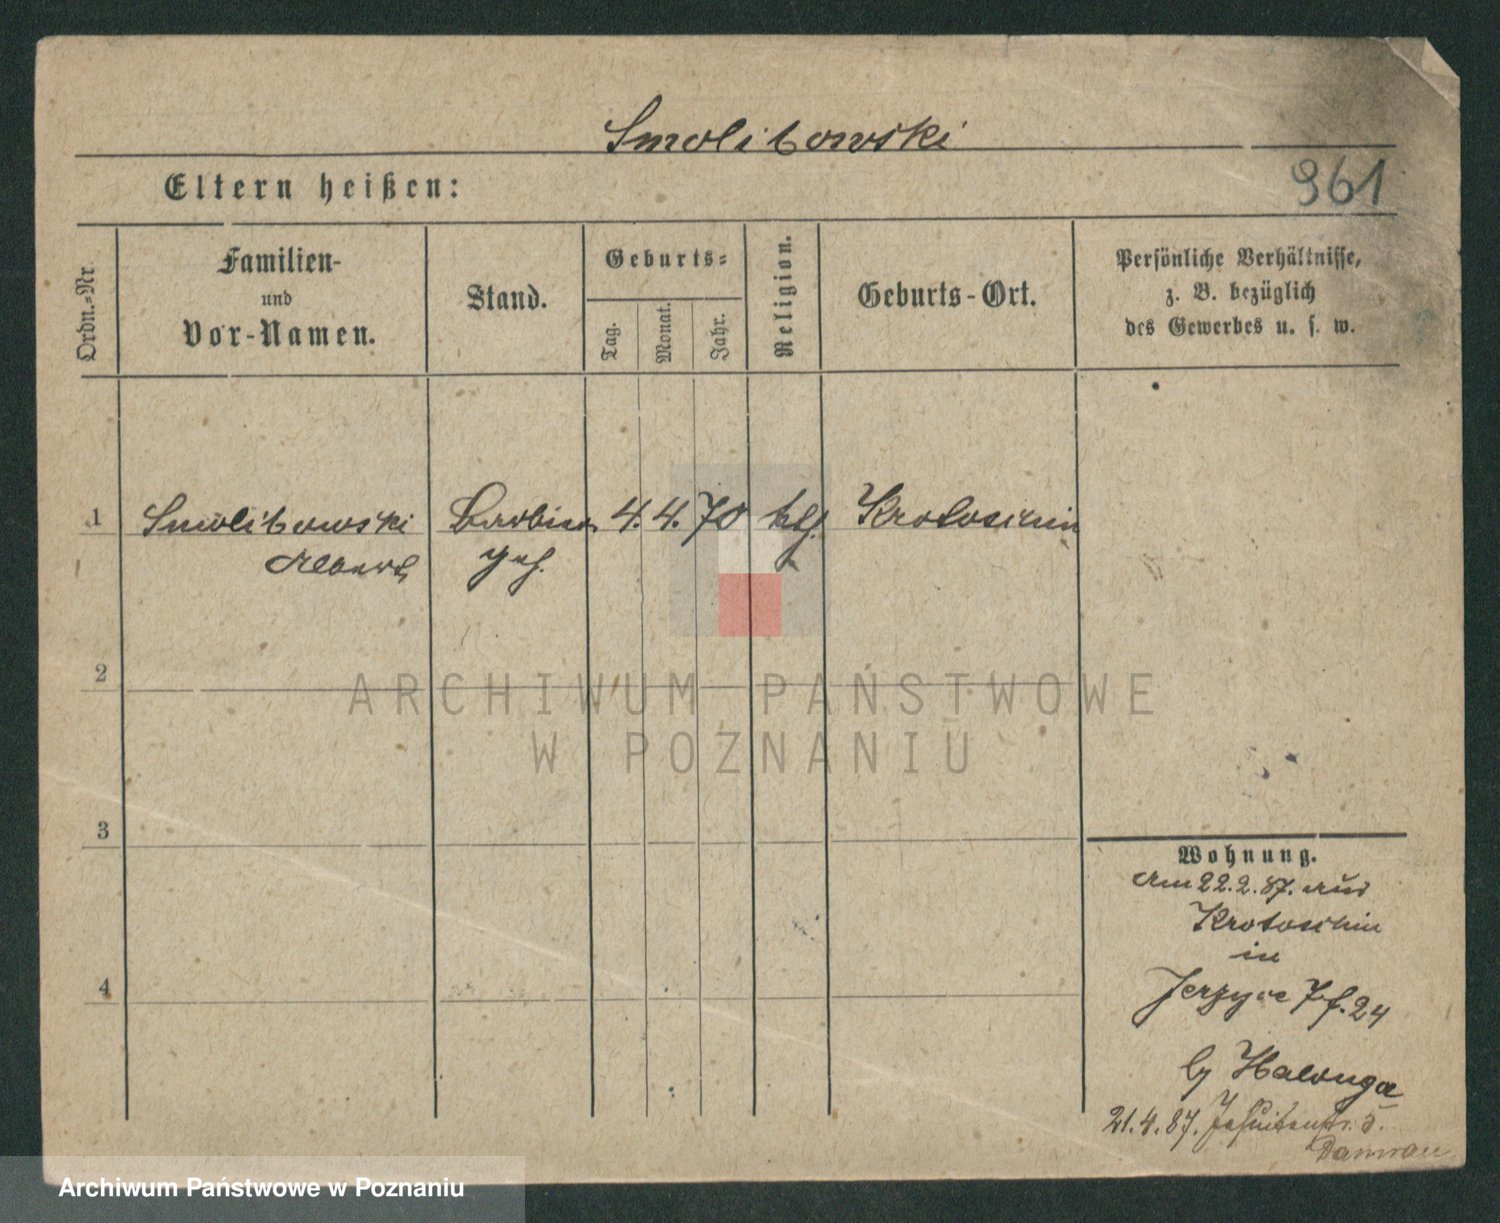 Smolibowski
Eltern heißen:
961
Ordn.=Nr.
Familien-
und
Vor-Namen.
Stand.
Geburts=
Tag.
Monat.
Jahr.
Religion.
Geburts-Ort.
Persönliche Verhältnisse,
z. B. bezüglich
des Gewerbes u. s. w.
1 Smolibowski Barbier 4. 4. 70 ktl. Krotoschin
Albert geh.
2
3
4
Wohnung.
Am 22. 2. 87. aus
Krotoschin
in
Jerzyce 24
by
21. 4. 87. Jesuitenstr. 5.
ARCHIWUM PAŃSTWOWE
W POZNANIU
Archiwum Państwowe w Poznaniu